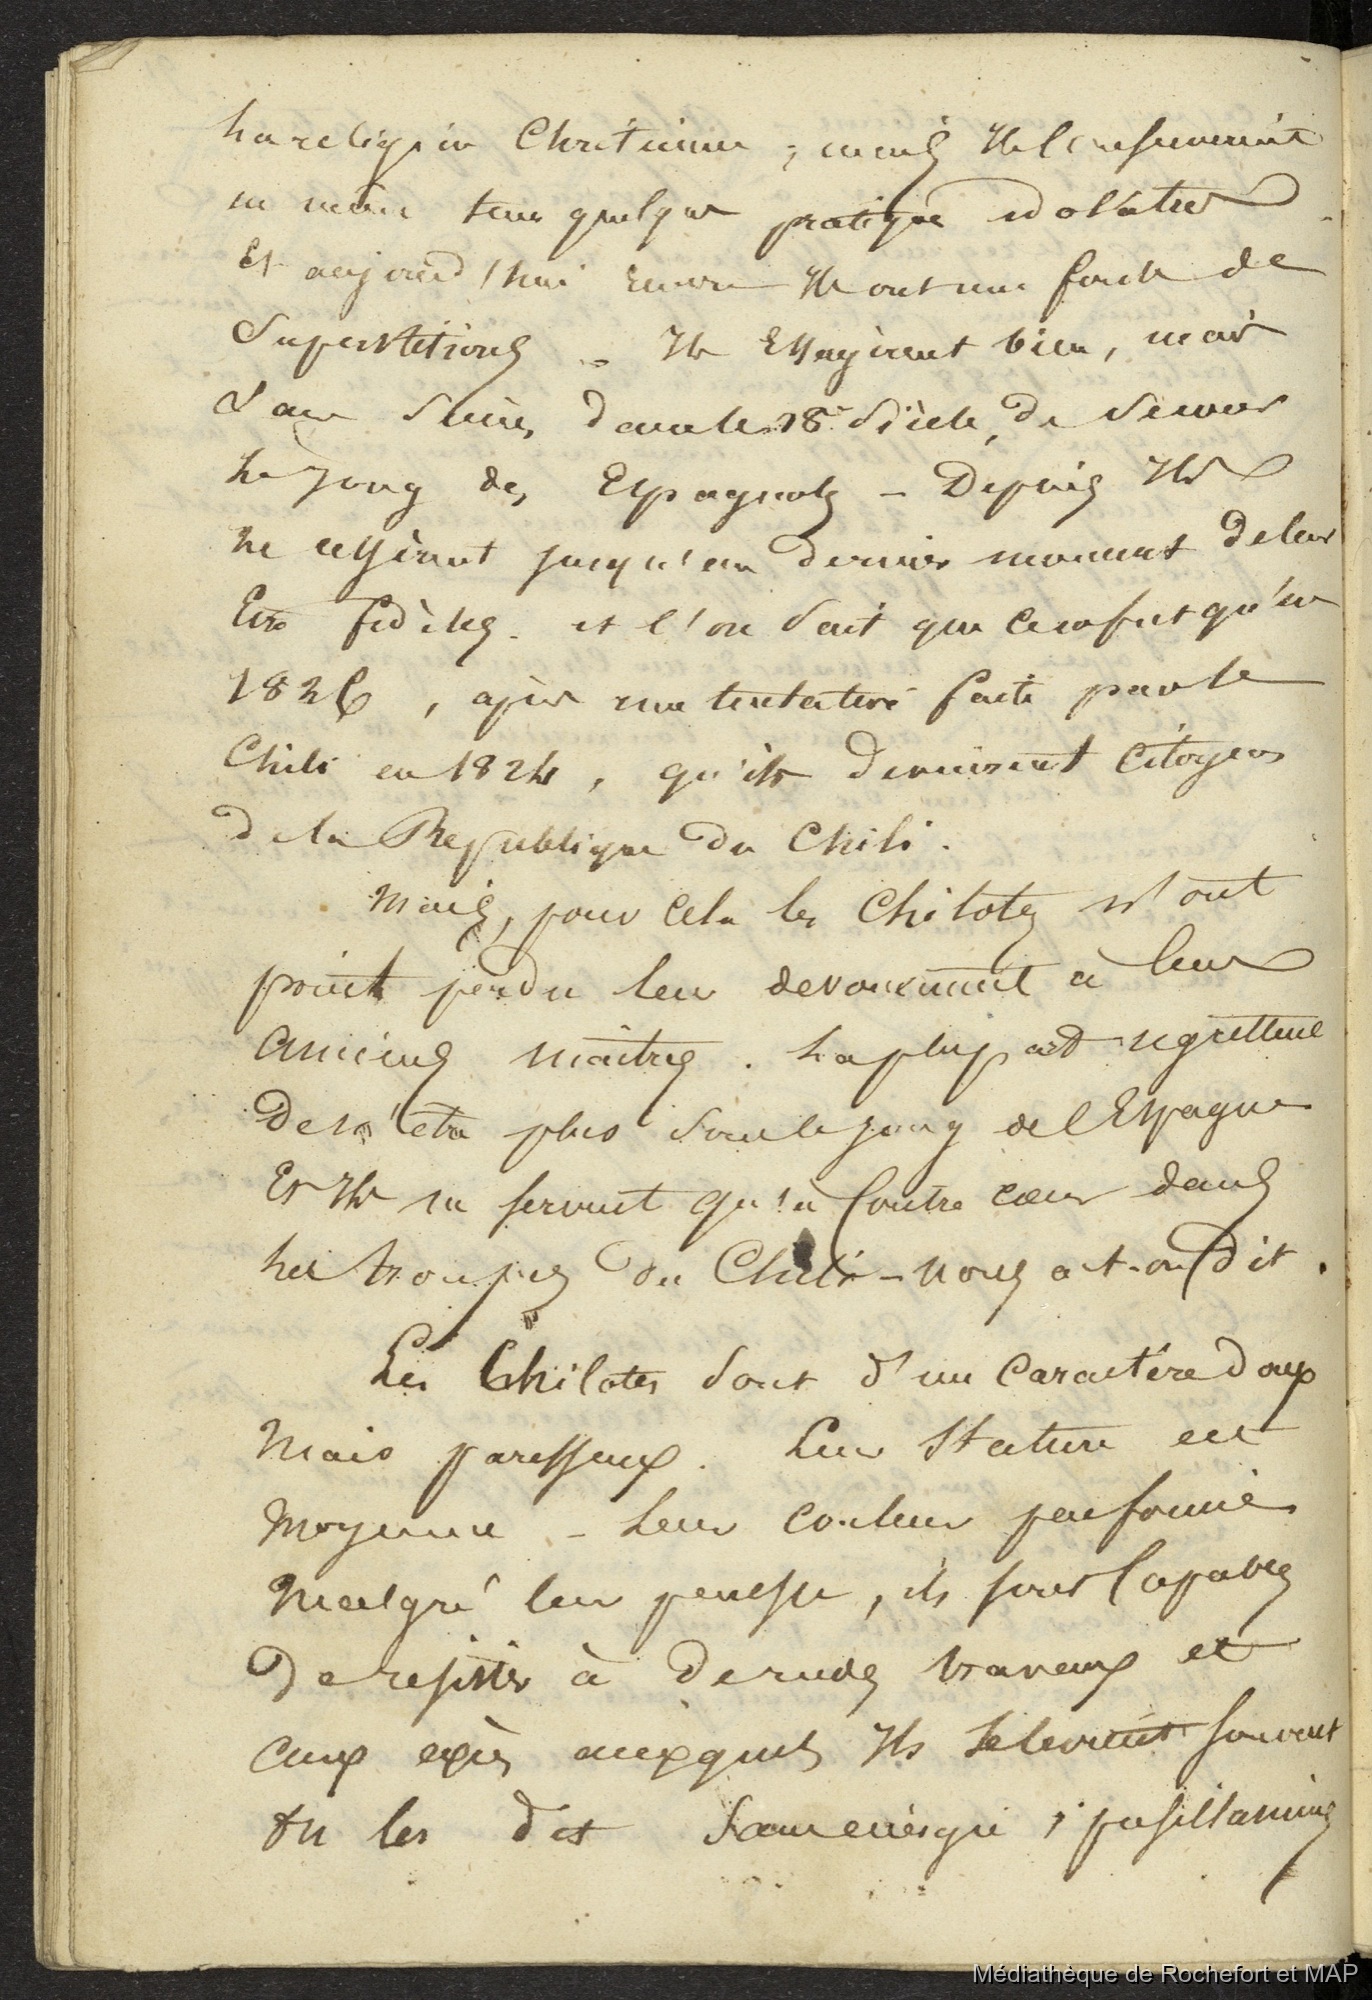 La religion Chrétienne ; mais Ils conservèrent
en même tems quelques pratiques idolâtres.
Et aujourd'hui encore Ils ont une foule de
Superstitions - Ils Essayèrent bien, mais
Sans Succès, dans le 18e Siècle, de secouer
Le Joug des Espagnols - Depuis Ils
ne cessèrent jusqu'au dernier moment de leur
Etre fidèles. et l'on sait que ce ne fut qu'en
1826, après une tentative faite par le
Chili en 1824, qu'ils devinrent Citoyens
de la République du Chili.
Mais, pour cela les Chilotes n'ont
point perdu leur devouement à leurs
anciens maîtres. La plupart regrettent
de n'être plus sous le joug de l'Espagne
Et Ils ne servent qu'à Contre cœur dans
les troupes du Chili - nous a-t-on dit.
Les Chilotes sont d'un caractère doux
Mais paresseux. Leur Stature est
Moyenne - Leur couleur peu foncée
Malgré leur paresse, ils sont Capables
de resister à de rudes travaux et
aux excès auxquels Ils se livrent souvent
On les dit sans energie, pusillanimes
Médiathèque de Rochefort et MAP